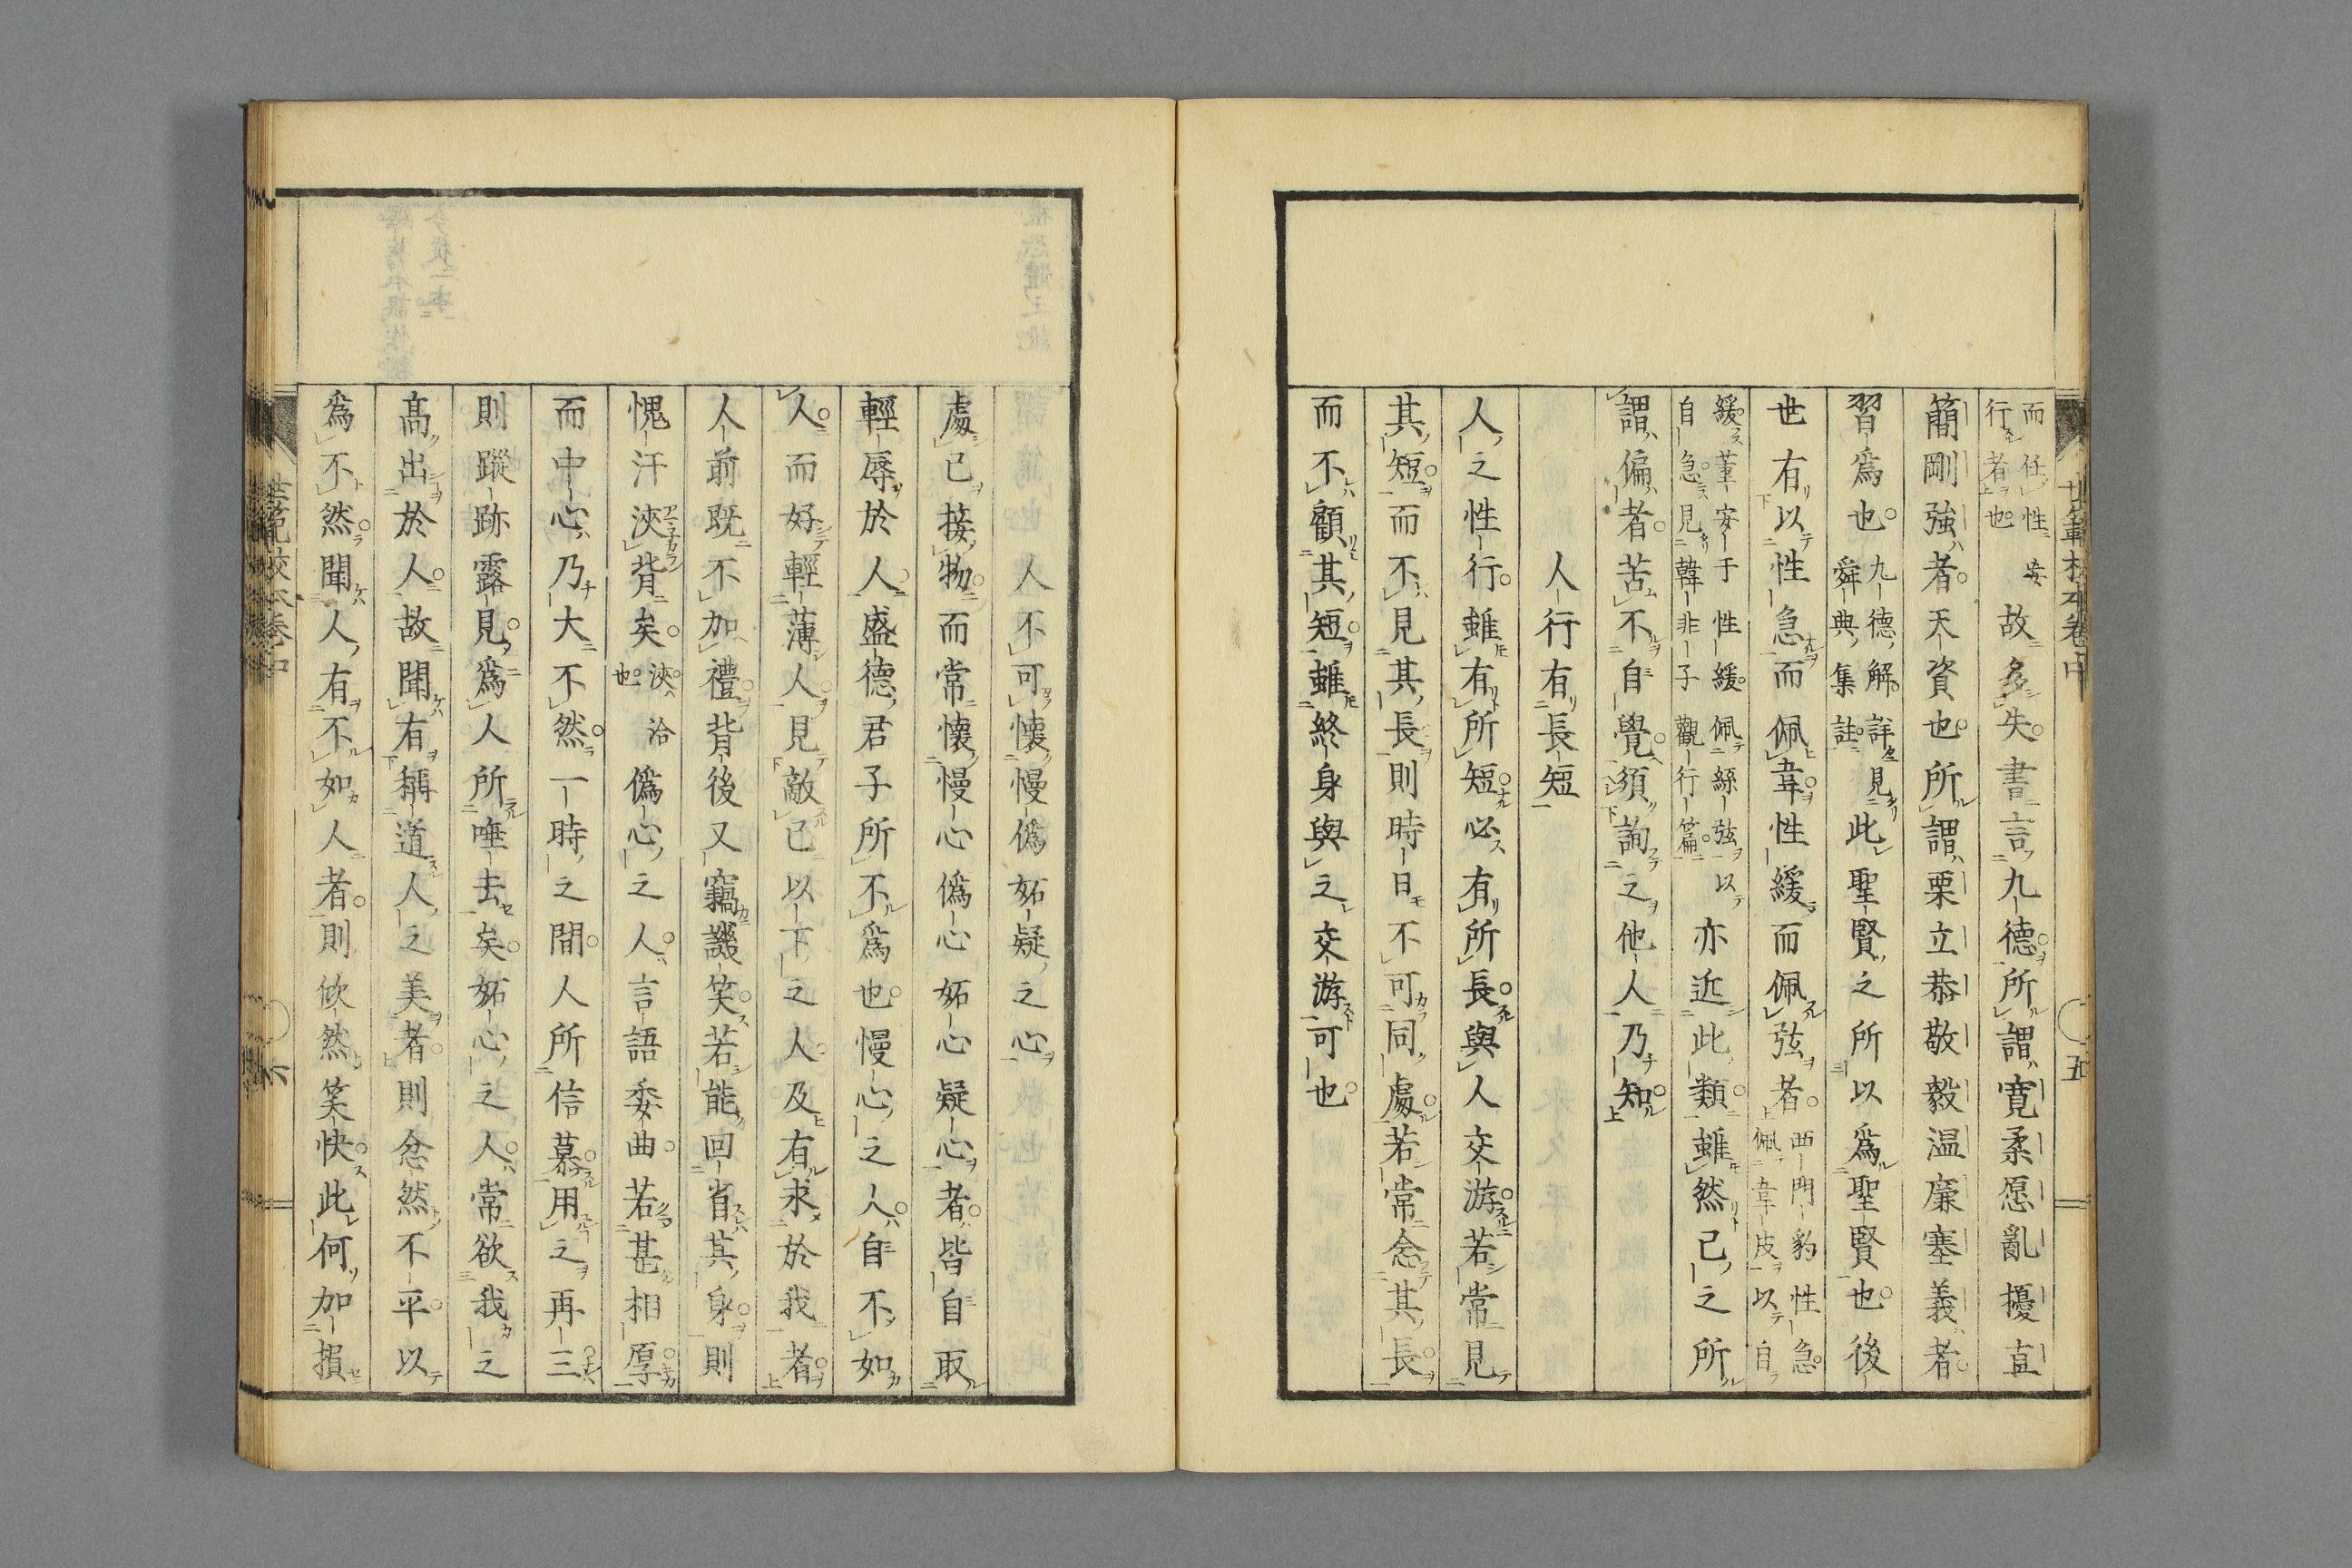 世範校本卷中
五
而任性 行者也 妄故多失書言九德所謂寬柔愿亂擾直
簡剛強者天資也所謂栗立恭敬毅温廉塞義者
習爲也 九德解詳見 舜典集註 此聖賢之所以爲聖賢也後
世有以性急而佩韋性緩而佩弦者 西門豹性急 佩韋皮以自
緩董安于性緩佩絲弦以 自急見韓非子觀行篇 亦近此類雖然已之所
謂偏者苦不自覺須詢之他人乃知
人行有長短
人之性行雖有所短必有所長與人交游若常見
其短而不見其長則時日不可同處若常念其長
而不顧其短雖終身與之交游可也
人不可懷慢僞妬疑之心
處已接物而常懷慢心僞心妬心疑心者皆自取
輕辱於人盛德君子所不爲也慢心之人自不如
人而好輕薄人見敵已以下之人及有求於我者
人前既不加禮背後又竊譏笑若能回省其身則
愧汗浹背矣 浹洽 也 僞心之人言語委曲若甚相厚
而中心乃大不然一時之間人所信慕用之再三
則蹤跡露見爲人所唾去矣妬心之人常欲我之
高出於人故聞有稱道人之美者則忿然不平以
爲不然聞人有不如人者則欣然笑快此何加損
世範校本卷中
六